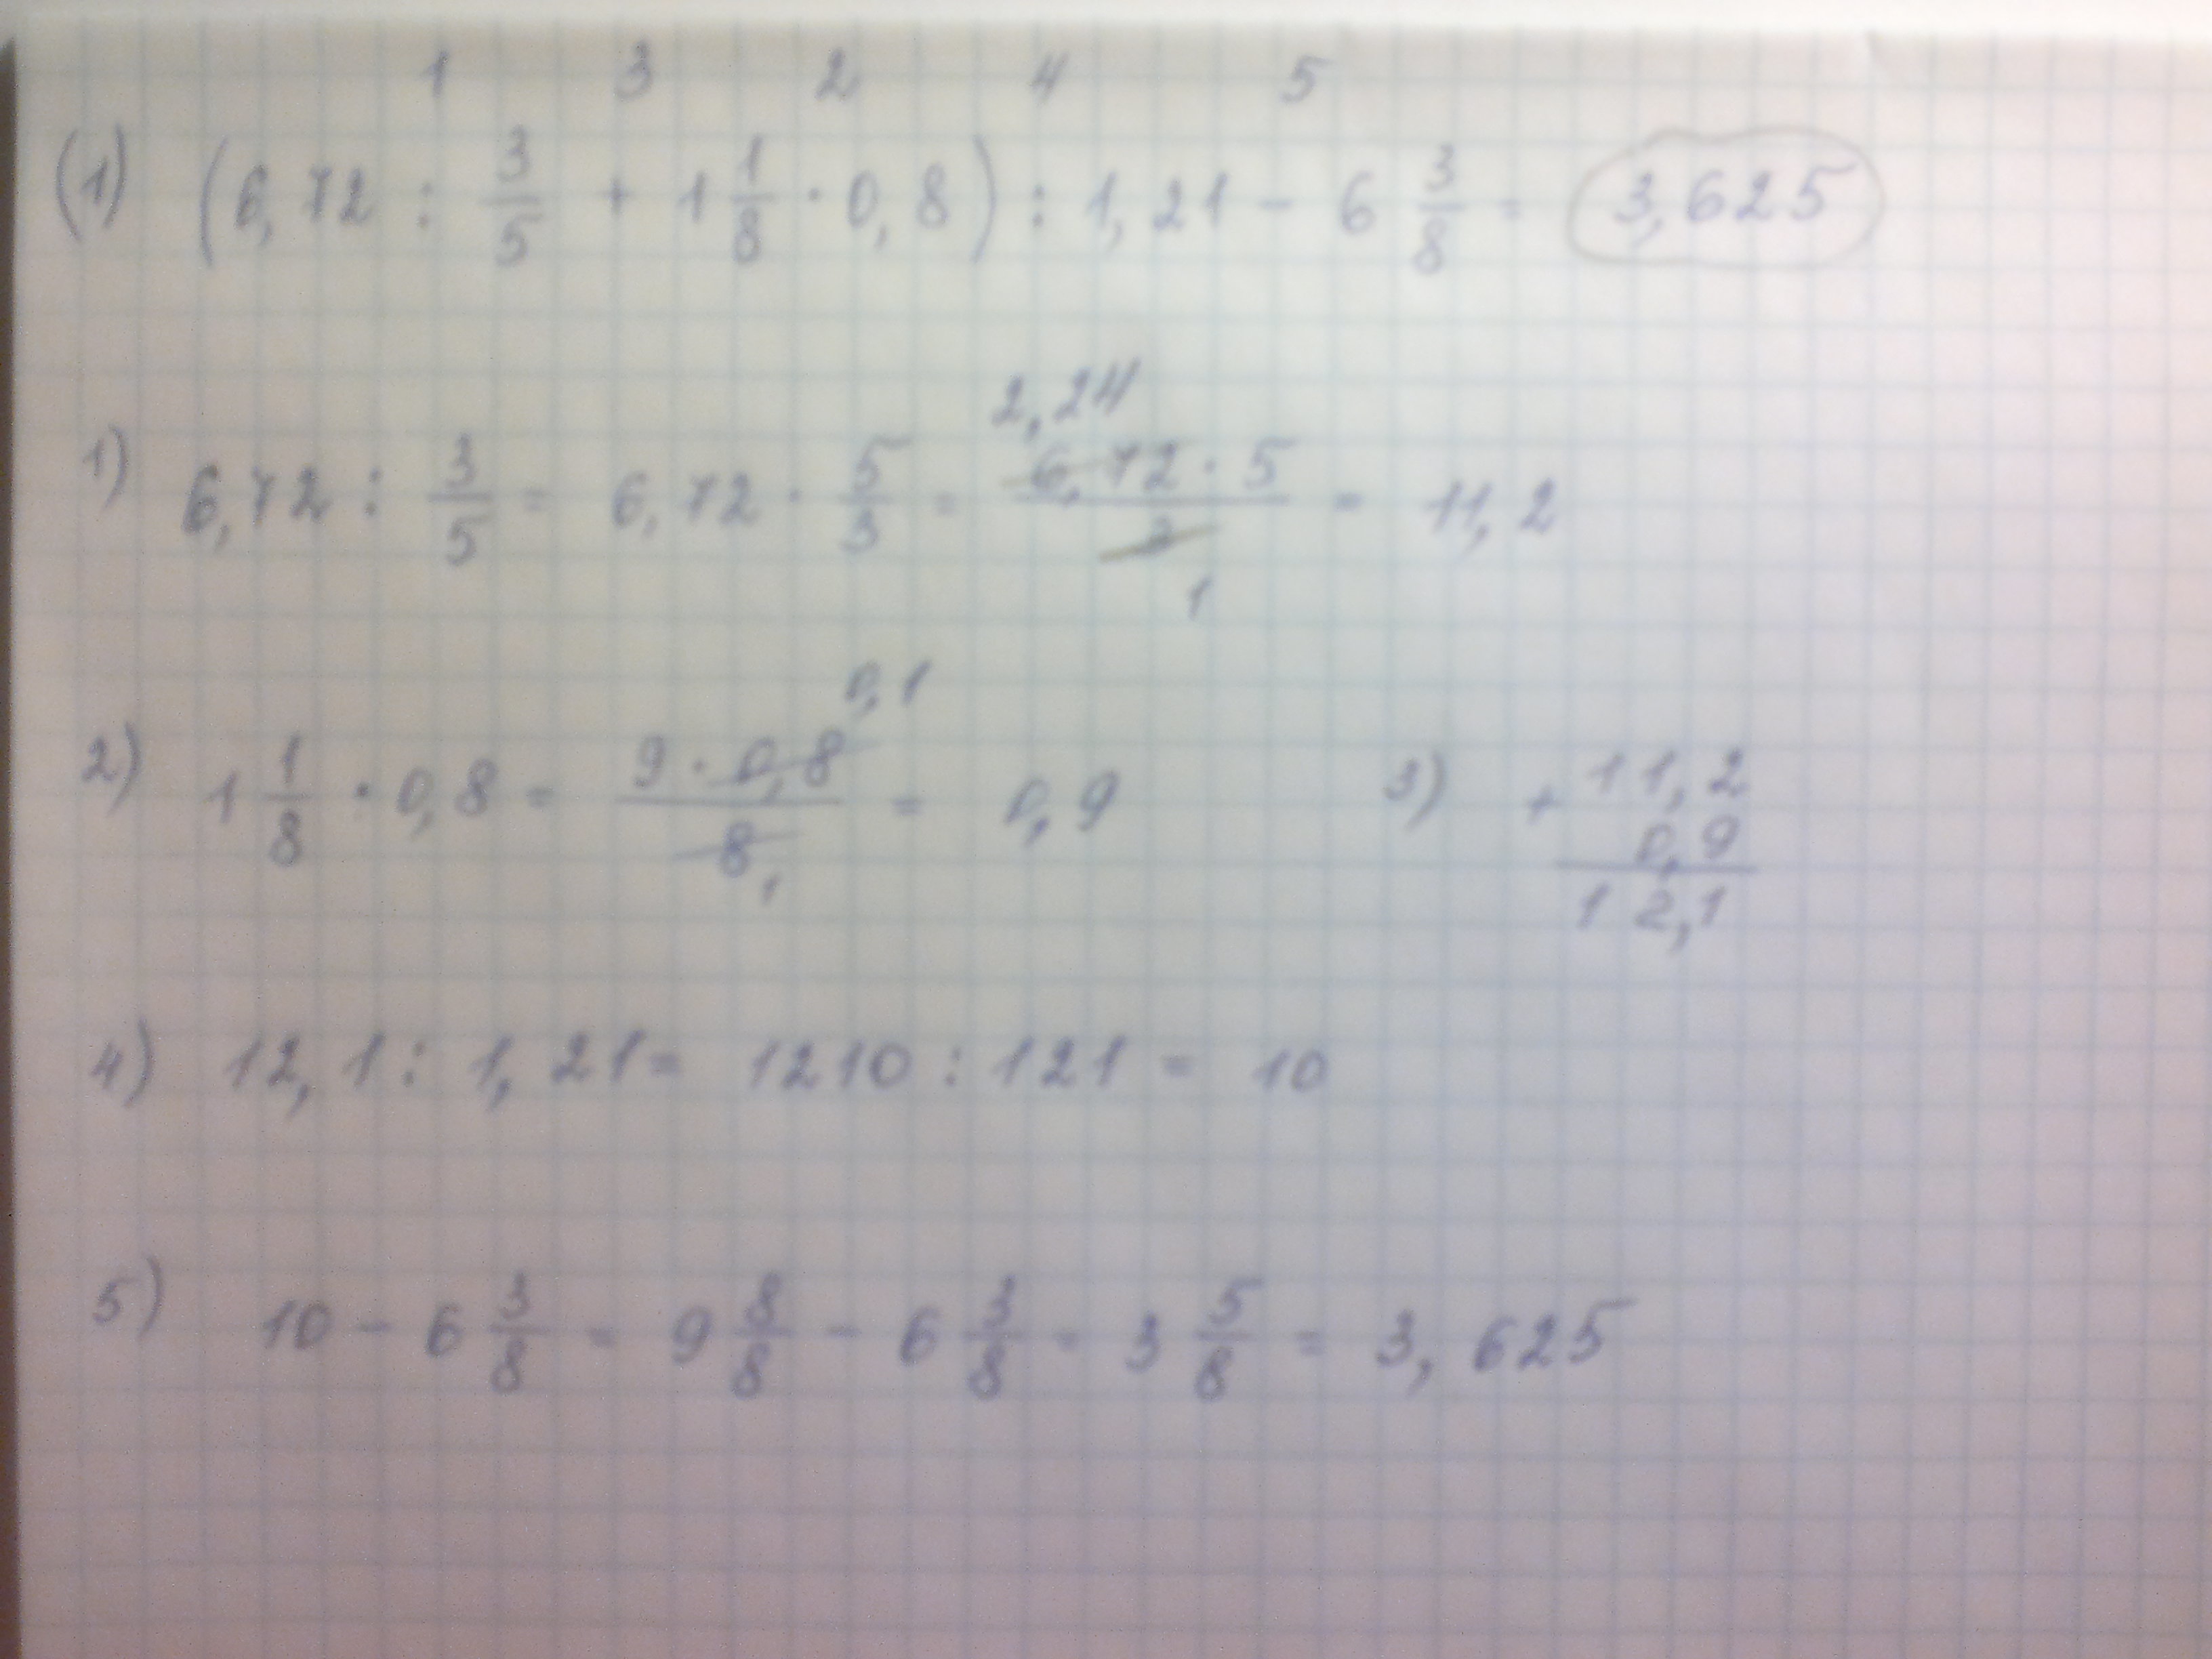 1 3 2 4 5
(1) (6,72 : 3/5 + 1 1/8 · 0,8) : 1,21 - 6 3/8 = 3,625
2,24
1) 6,72 : 3/5 = 6,72 · 5/3 = 6,72 · 5/3 = 11,2
1
0,1
2) 1 1/8 · 0,8 = 9 · 0,8/8 = 0,9
1
3) + 11,2
0,9
12,1
4) 12,1 : 1,21 = 1210 : 121 = 10
5) 10 - 6 3/8 = 9 8/8 - 6 3/8 = 3 5/8 = 3,625